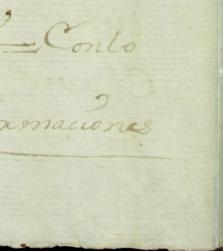 Conlo
xmaciones